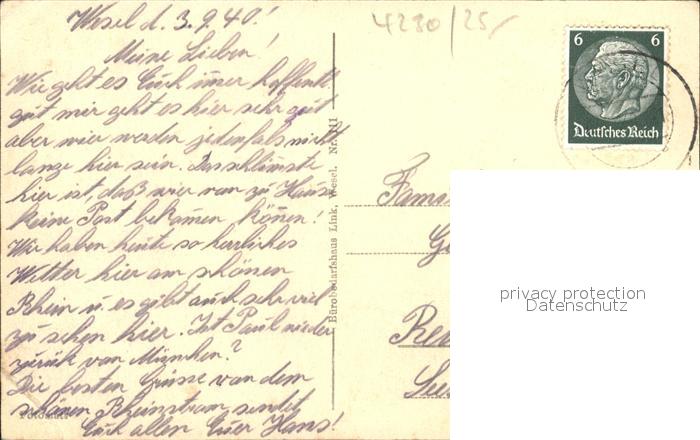 Wesel d. 3.9.40!
Meine Lieben!
Wie geht es Euch immer hoffentl
gut mir geht es hier sehr gut
aber wier werden jedenfals nicht
lange hier sein. Das schlimste
hier ist, daß wier von zu Hause
keine Post bekomen können!
Wir haben heute so herrliches
Wetter hier am schönen
Rhein u. es gibt auch sehr viel
zu sehen hier. Ist Paul wieder
zurük von München?
Die besten Grüsse von dem
schönen Rheinstrom sendet
Euch allen Euer Hans!
Bürobedarfshaus Link, Wesel. Nr.
4230/25,-
6 6
Deutsches Reich
Fami
Ge
privacy protection
Datenschutz